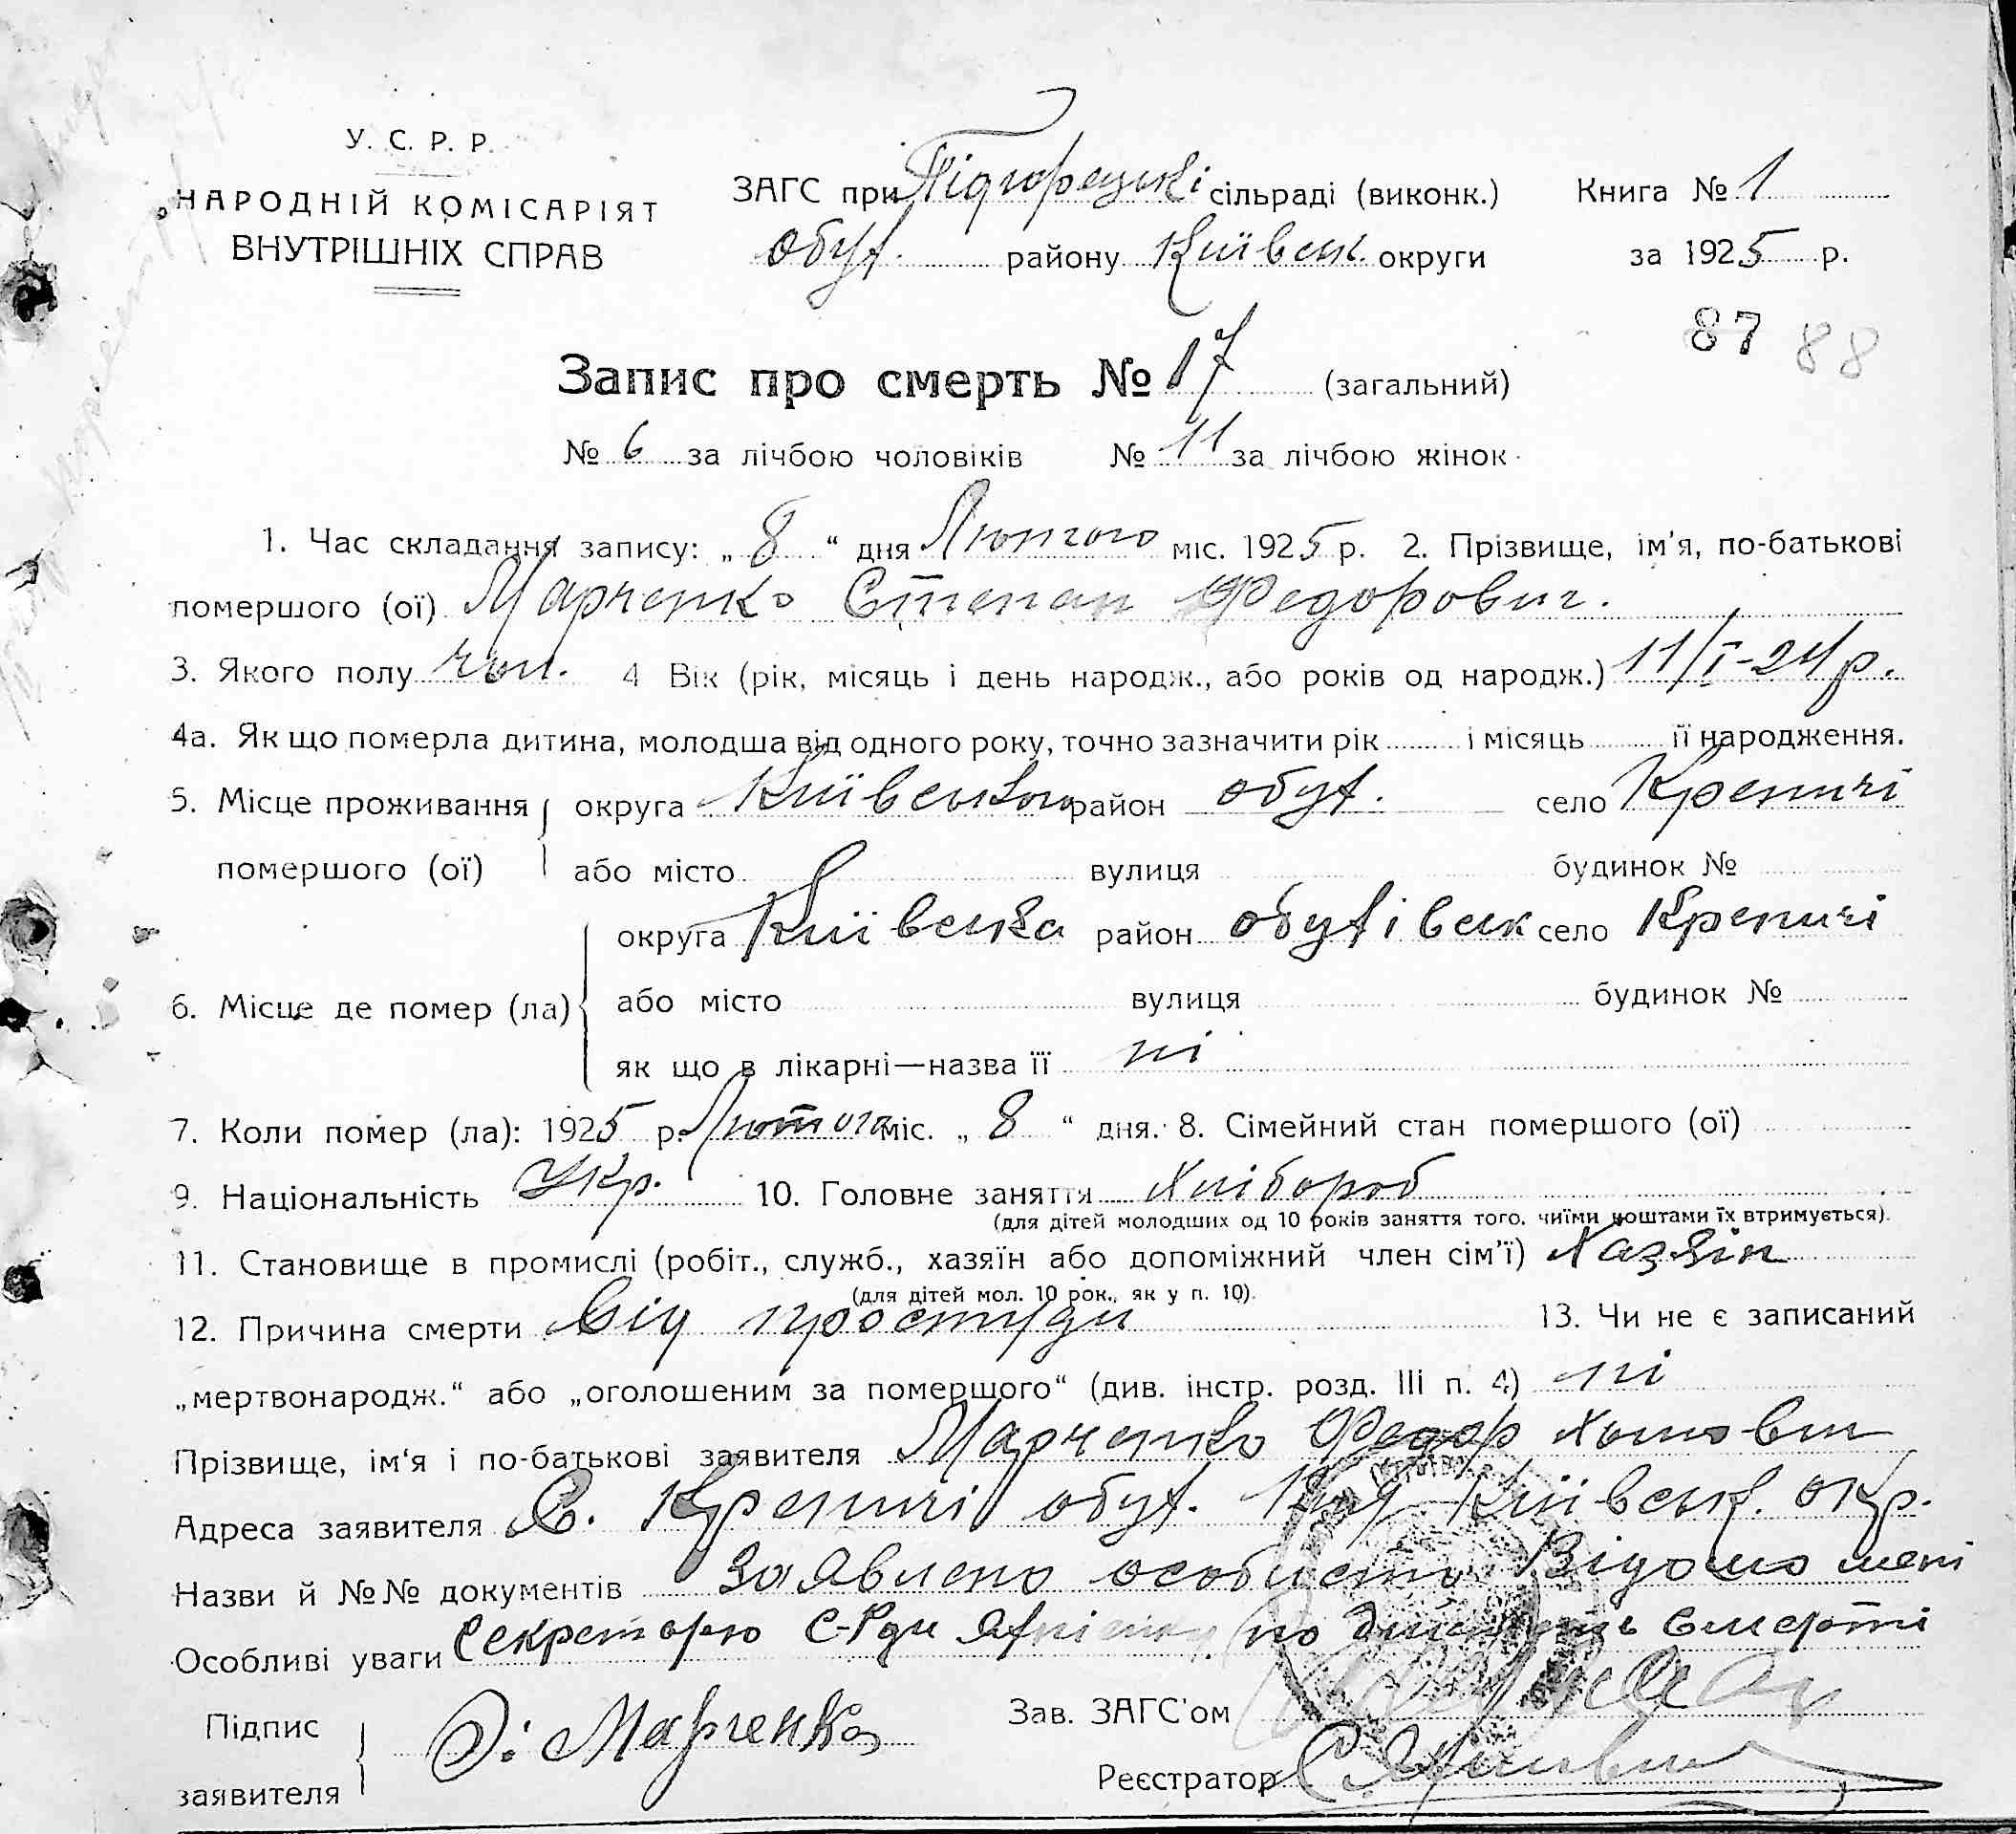 У. С. Р. Р.
НАРОДНІЙ КОМІСАРІЯТ
ВНУТРІШНІХ СПРАВ
ЗАГС при Підгорецькі сільраді (виконк.) Книга № 1
обух. району Київськ. округи за 1925 р.
87 88
Запис про смерть № 17 (загальний)
№ 6 за лічбою чоловіків № 11 за лічбою жінок
1. Час складання запису: „ 8 “ дня Лютого міс. 1925 р. 2. Прізвище, ім'я, по-батькові
помершого (ої) Марченко Степан Федорович.
3. Якого полу чол. 4 Вік (рік, місяць і день народж., або років од народж.) 11/I-24 р.
4а. Як що померла дитина, молодша від одного року, точно зазначити рік і місяць її народження.
5. Місце проживання округа Київського район обух. село Креничі
помершого (ої) або місто вулиця будинок №
округа Київська район обухівськ село Креничі
6. Місце де помер (ла) або місто вулиця будинок №
як що в лікарні—назва її ні
7. Коли помер (ла): 1925 р. Лютого міс. „ 8 “ дня. 8. Сімейний стан помершого (ої)
9. Національність Укр. 10. Головне заняття Хлібороб
(для дітей молодших од 10 років заняття того, чиїми коштами їх втримується).
11. Становище в промислі (робіт., служб., хазяїн або допоміжний член сім'ї) Хазяін
(для дітей мол. 10 рок., як у п. 10).
12. Причина смерти Від простуди 13. Чи не є записаний
„мертвонародж.“ або „оголошеним за померщого“ (див. інстр. розд. III п. 4) ні
Прізвище, ім'я і по-батькові заявителя Марченко Федор Хомович
Адреса заявителя С. Креничі обух. Київськ. окр.
Назви й №№ документів Заявлено особисто Відомо мені
Особливі уваги Секретарю С-Ради по смерті
Підпис
заявителя Ф: Марченко
Зав. ЗАГС'ом
Реєстратор